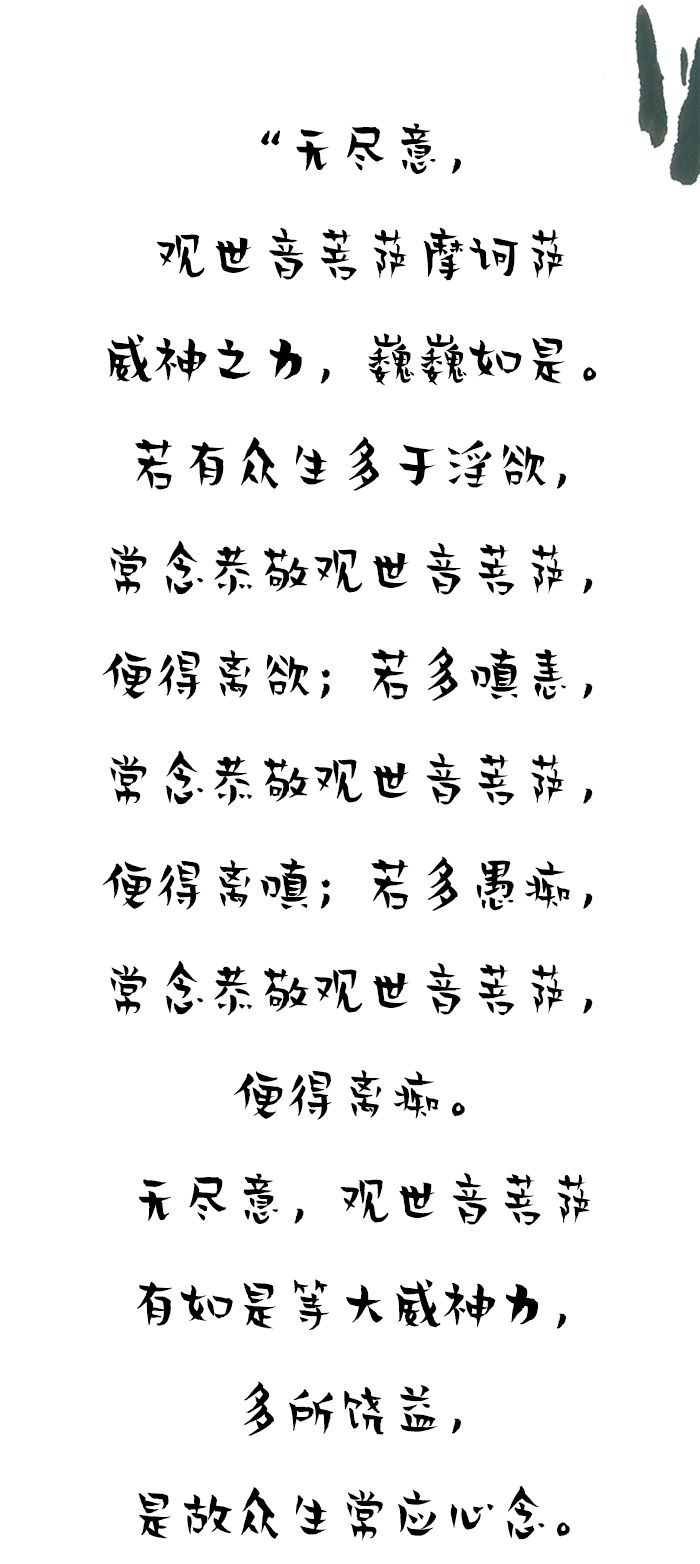 “无尽意，
观世音菩萨摩诃萨
威神之力，巍巍如是。
若有众生多于淫欲，
常念恭敬观世音菩萨，
便得离欲；若多嗔恚，
常念恭敬观世音菩萨，
便得离嗔；若多愚痴，
常念恭敬观世音菩萨，
便得离痴。
无尽意，观世音菩萨
有如是等大威神力，
多所饶益，
是故众生常应心念。